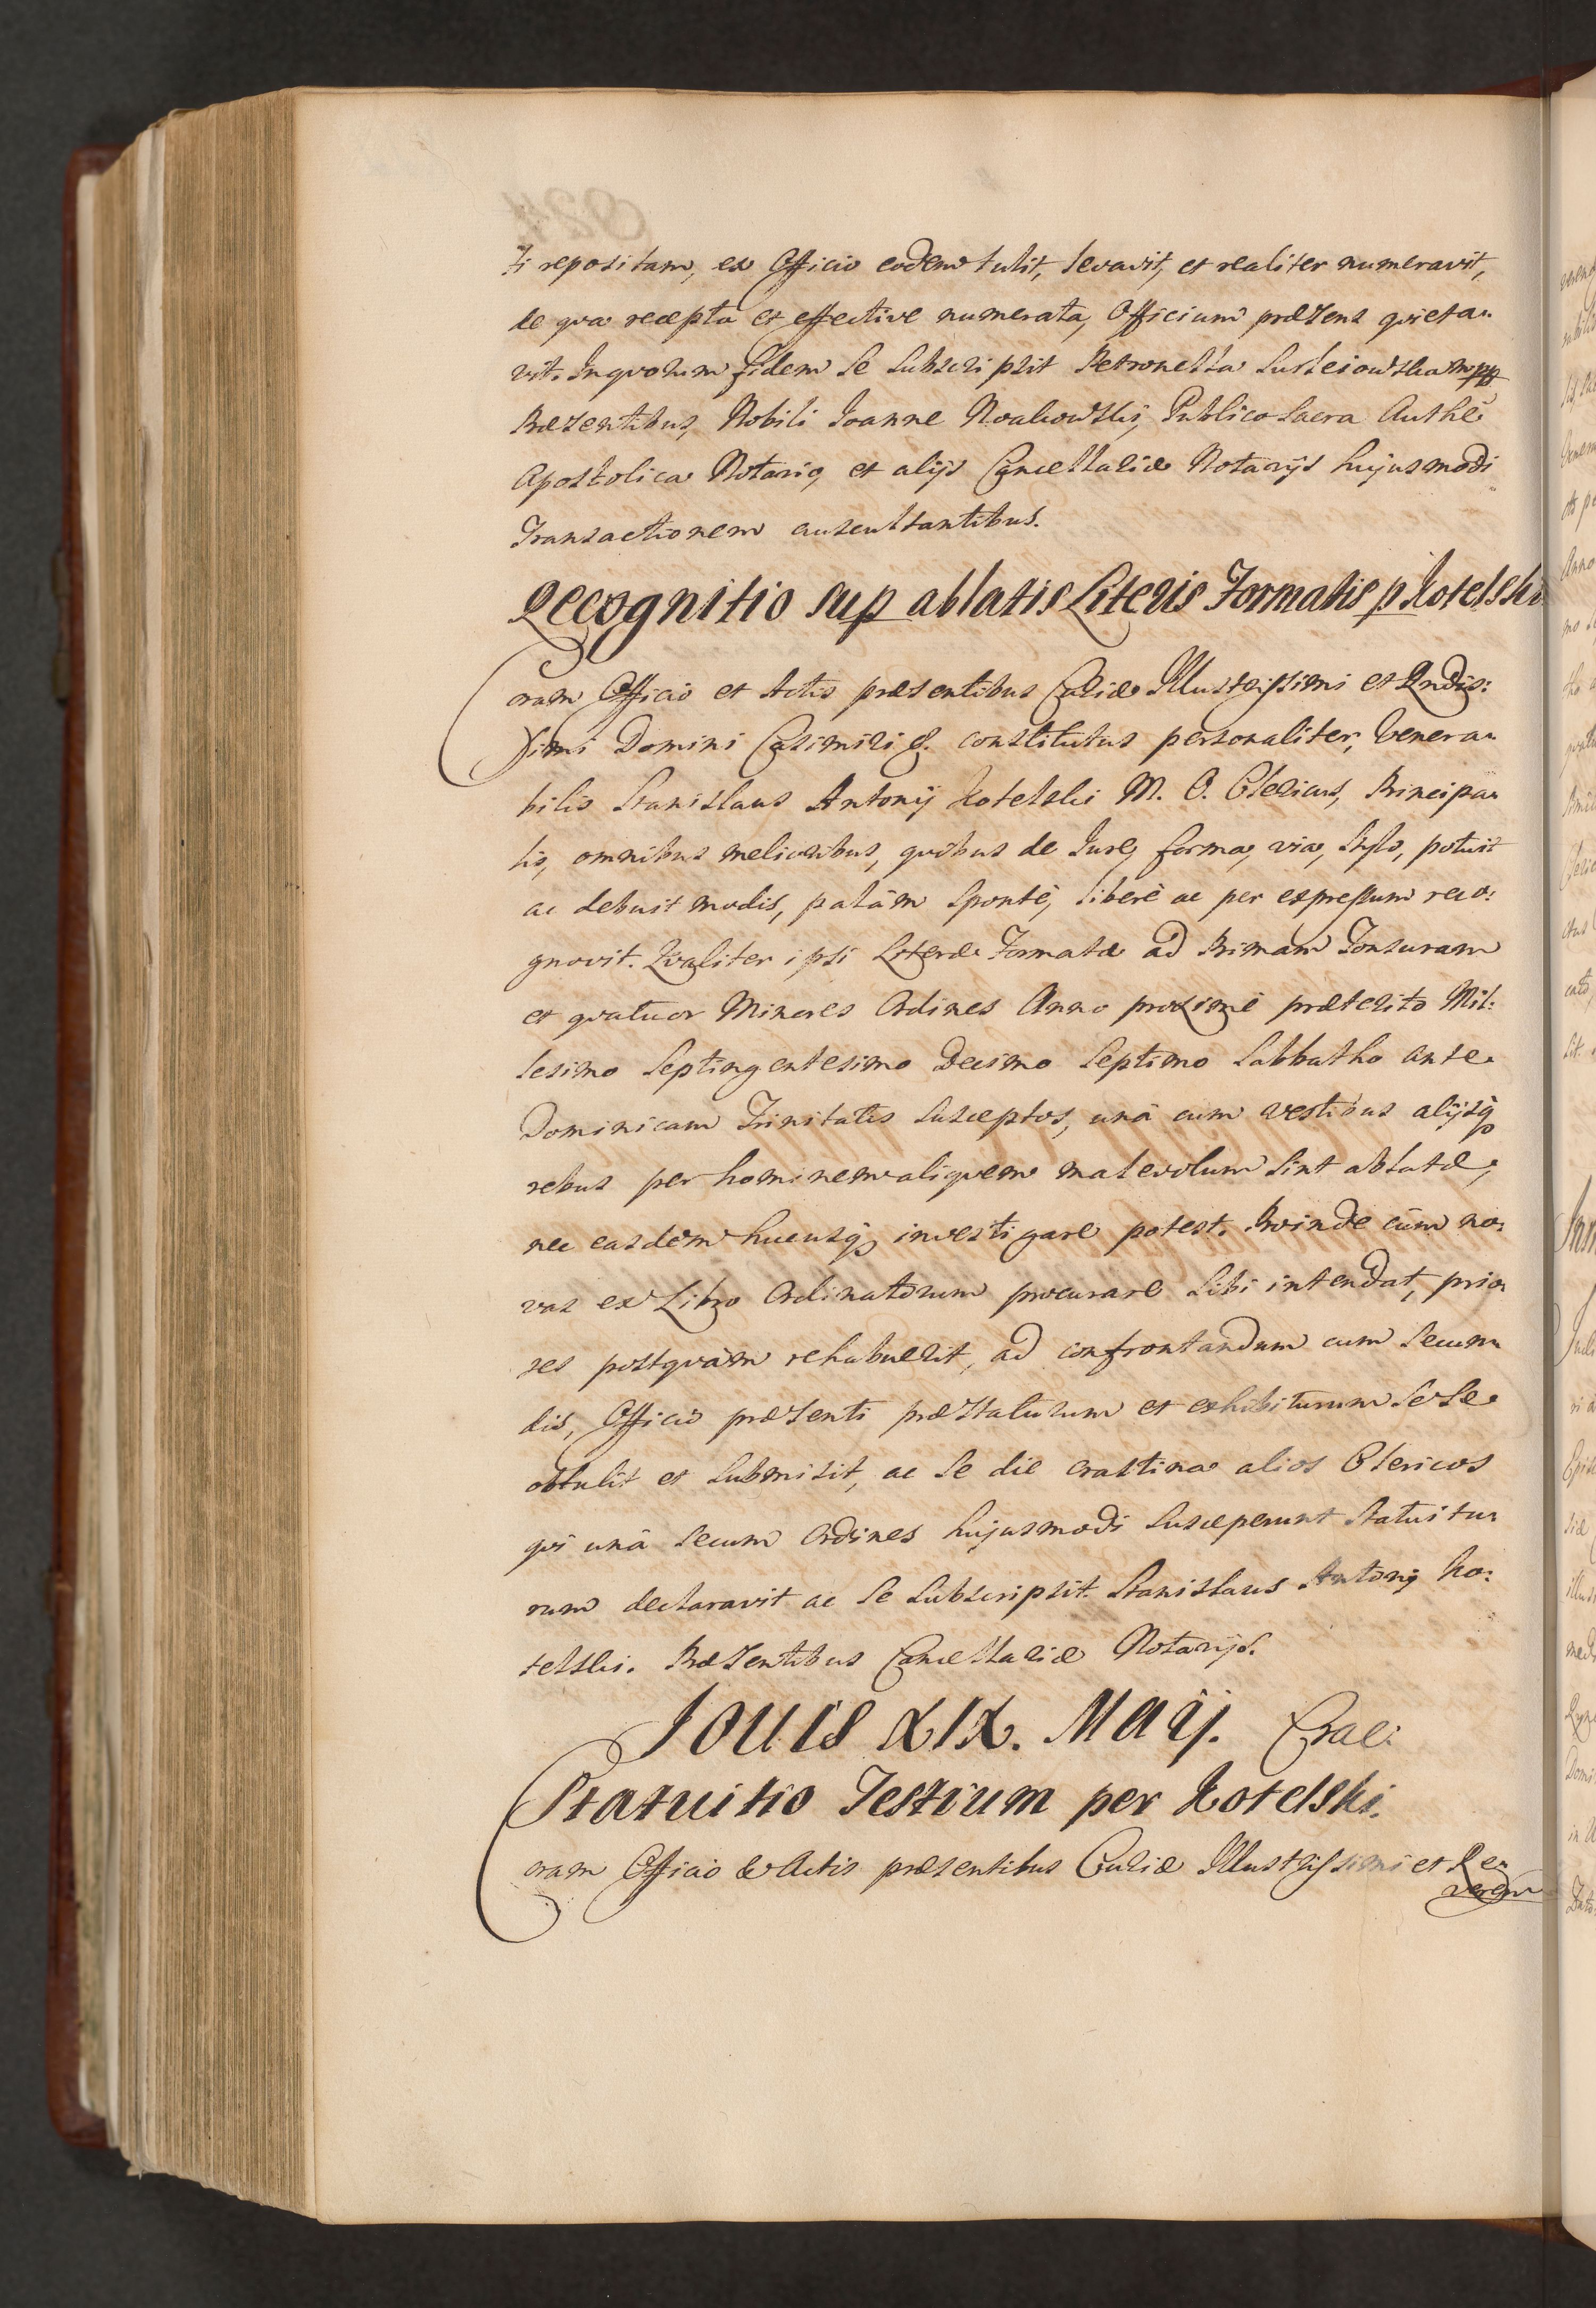 ti repositam, ex Officio eodem tulit, levavit, et realiter numeravit,
de qva recepta et effective numerata, Officium præsens qvieta„
vit. Inqvorum fidem se subscripsit Petronella mpp
Præsentibus, Nobili Joanne Noakowski, Publico Sacra Authẽ
Apostolica Notario, et alijs Cancellariæ Notarijs hujusmodi
Transactionem auscultantibus.
Recognitio sup ablatis Literis Formatis p Kotelski
Coram Officio et Actis præsentibus Curiæ Illustrissimi et Rndis:
simi Domini Casimiri &. constitutus personaliter, Venera„
bilis Stanislaus Antonij Kotelski M. O. Clericus, Principa„
lis, omnibus melioribus, qvibus de Jure, forma, via, stylo, potuit
ac debuit modis, palàm sponté, liberè ac per expressum reco:
gnovit. Qvaliter ipsi Literæ Formatæ ad Primam Tonsuram
et qvatuor Minores Ordines Anno proximé præterito Mil:
lesimo Septingentesimo Decimo Septimo Sabbatho ante
Dominicam Trinitatis susceptos, unâ cum vestibus alijsq
rebus per hominem aliqvem malevolum sint ablatæ,
nec easdem hucusq investigare potest. Proinde cûm no:
vas ex Libro Ordinatorum procurare sibi intendat, prio„
res postqvàm rehabuerit, ad confrontandum cum secun„
dis, Officio præsenti præstaturum et exhibiturum sese
obtulit et submisit, ac se die crastina alios Clericos
qvi unâ secum Ordines hujusmodi susceperunt statuitu„
rum declaravit ac se subscripsit. Stanislaus Antonij Ko:
telski. Præsentibus Cancellariæ Notarijs.
Jouis XIX. Maij. Crac:
Statuitio Testium per Kotelski.
Coram Officio & Actis præsentibus Curiæ Illustrissimi et Re„
verẽn